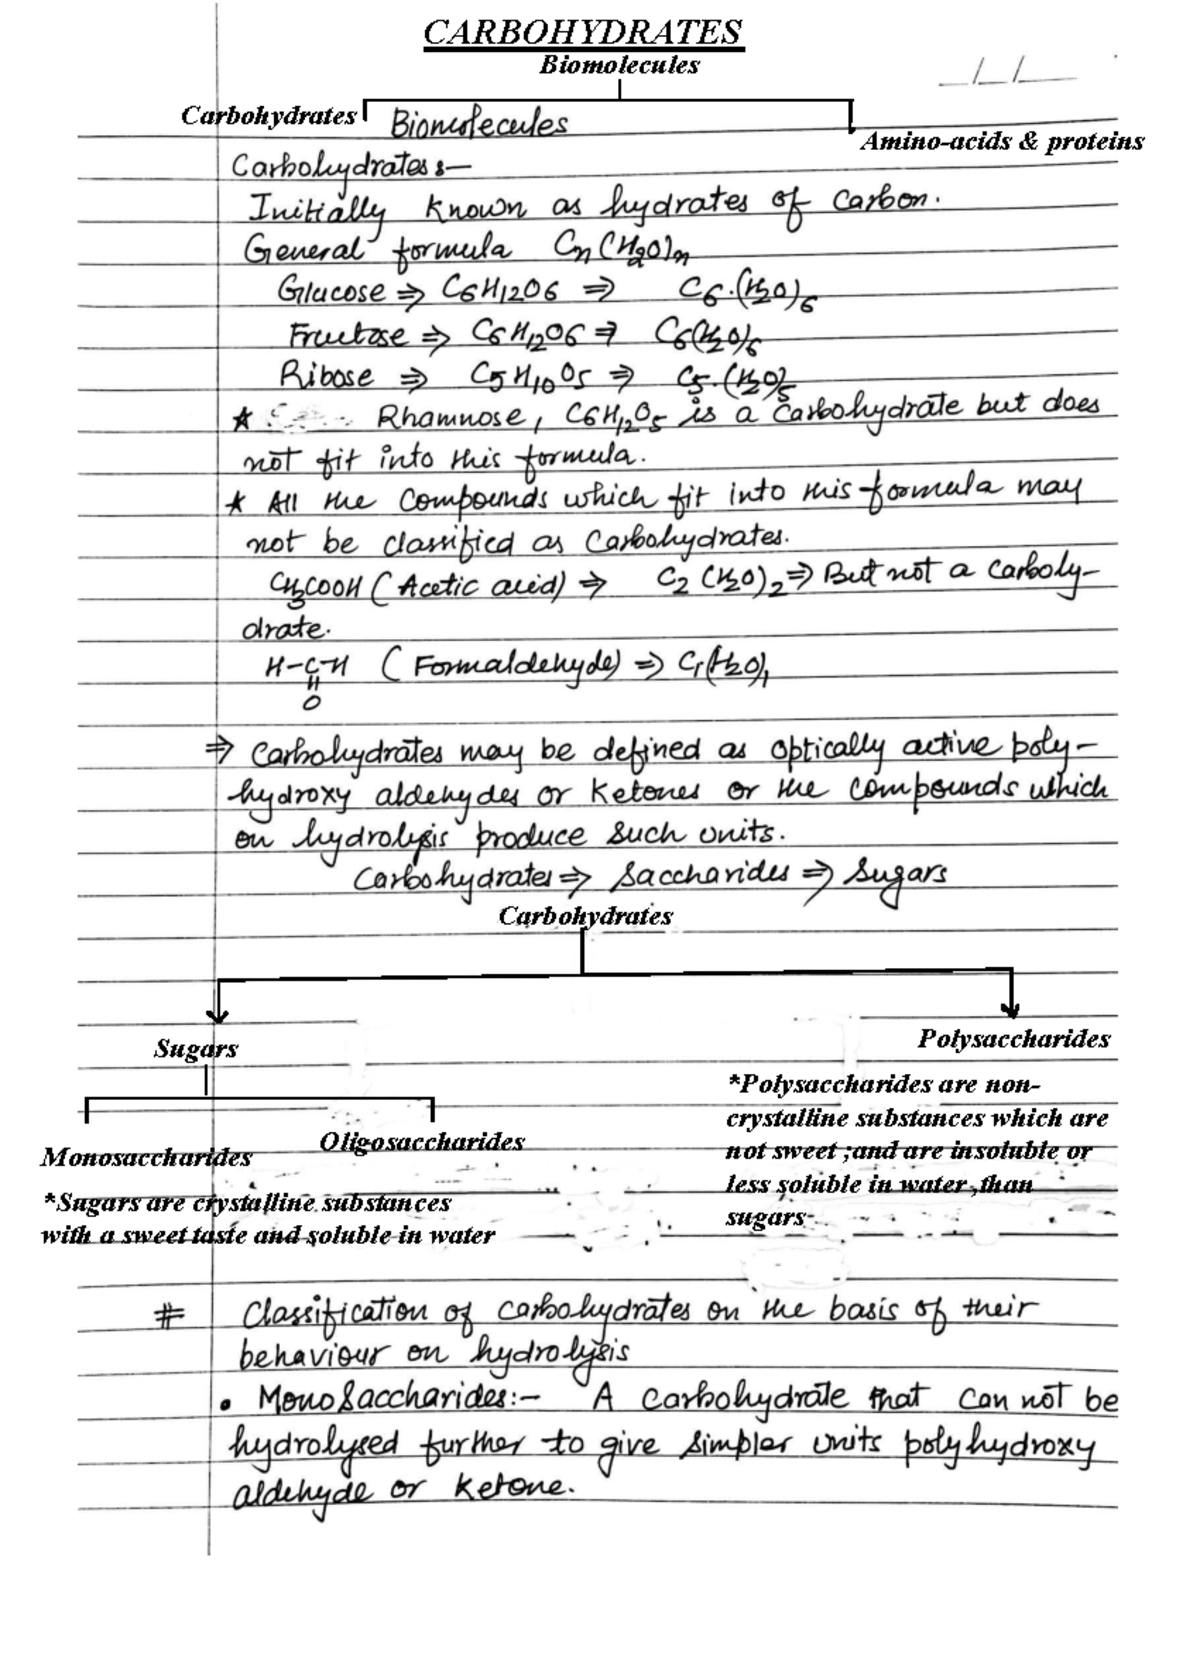 CARBOHYDRATES
Biomolecules
_/_/__
Carbohydrates
Biomolecules
Amino-acids & proteins
Carbohydrates:-
Initially known as hydrates of carbon.
General formula Cn(H2O)n
Glucose ⇒ C6H12O6 ⇒ C6.(H2O)6
Fructose ⇒ C6H12O6 ⇒ C6(H2O)6
Ribose ⇒ C5H10O5 ⇒ C5.(H2O)5
★ Rhamnose, C6H12O5 is a Carbohydrate but does
not fit into this formula.
★ All the compounds which fit into this formula may
not be classified as Carbohydrates.
CH3COOH (Acetic acid) ⇒ C2(H2O)2 ⇒ But not a carbohy-
drate.
H-C-H (Formaldehyde) ⇒ C1(H2O)1
||
O
⇒ Carbohydrates may be defined as optically active poly-
hydroxy aldehydes or Ketones or the compounds which
on hydrolysis produce such units.
Carbohydrates ⇒ Saccharides ⇒ Sugars
Carbohydrates
Sugars
Polysaccharides
Monosaccharides
Oligosaccharides
*Sugars are crystalline substances
with a sweet taste and soluble in water
*Polysaccharides are non-
crystalline substances which are
not sweet ;and are insoluble or
less soluble in water ,than
sugars
# Classification of carbohydrates on the basis of their
behaviour on hydrolysis
• MonoSaccharides:- A carbohydrate that can not be
hydrolysed further to give simpler units polyhydroxy
aldehyde or ketone.